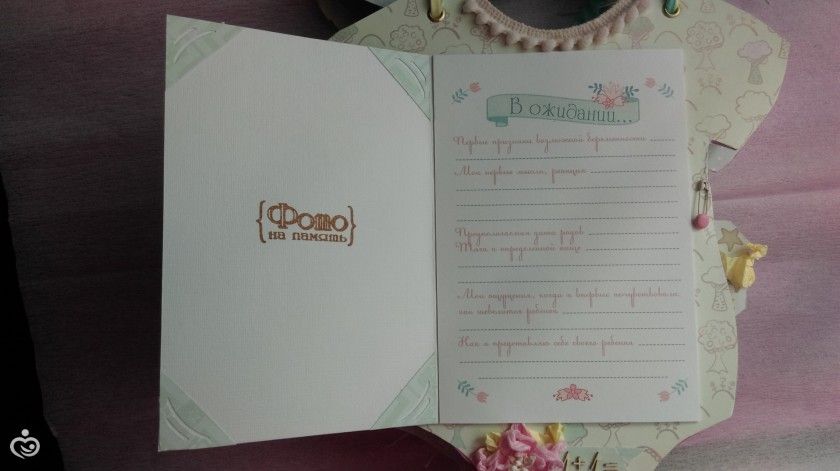 {Фото}
на память
В ожидании...
Первые признаки возможной беременности
Мои первые мысли, реакция
Предполагаемая дата родов
Тяга к определенной пище
Мои ощущения, когда я впервые почувствовала,
как шевелится ребенок
Как я представляю себе своего ребенка
1+1=